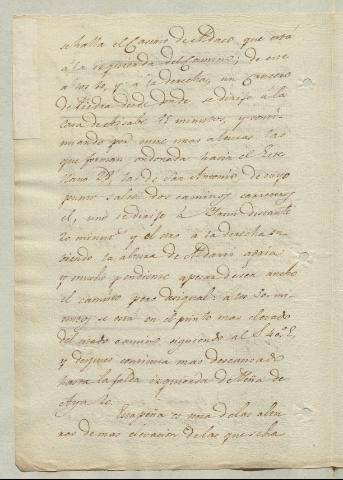 se halla el Casino de Aldaco que está
á la izquierda del Camino; de este
á los 10, y á la derecha, un Crucero
de Piedra desde donde se dirije á la
Casa de 15 minutos, y conti-
nuando por entre unas alturas las
que forman ordonada hacia el Este
las de San Antonio de cuyo
punto salen dos caminos carreteros
el uno se dirije á Irun distante
20 minutos y el otro á la derecha su-
biendo la altura de agria
y mucho pendiente apesar de sea ancho
el camino pero desigual: á los 30 mi-
nutos se está en el punto mas elevado
del citado camino siguiendo al S 40 E,
y despues continua mas descansado
hasta la falda izquierda de Peña de
Aya
Esta peña es una de las altu-
ras de mas elevacion de las que se ha